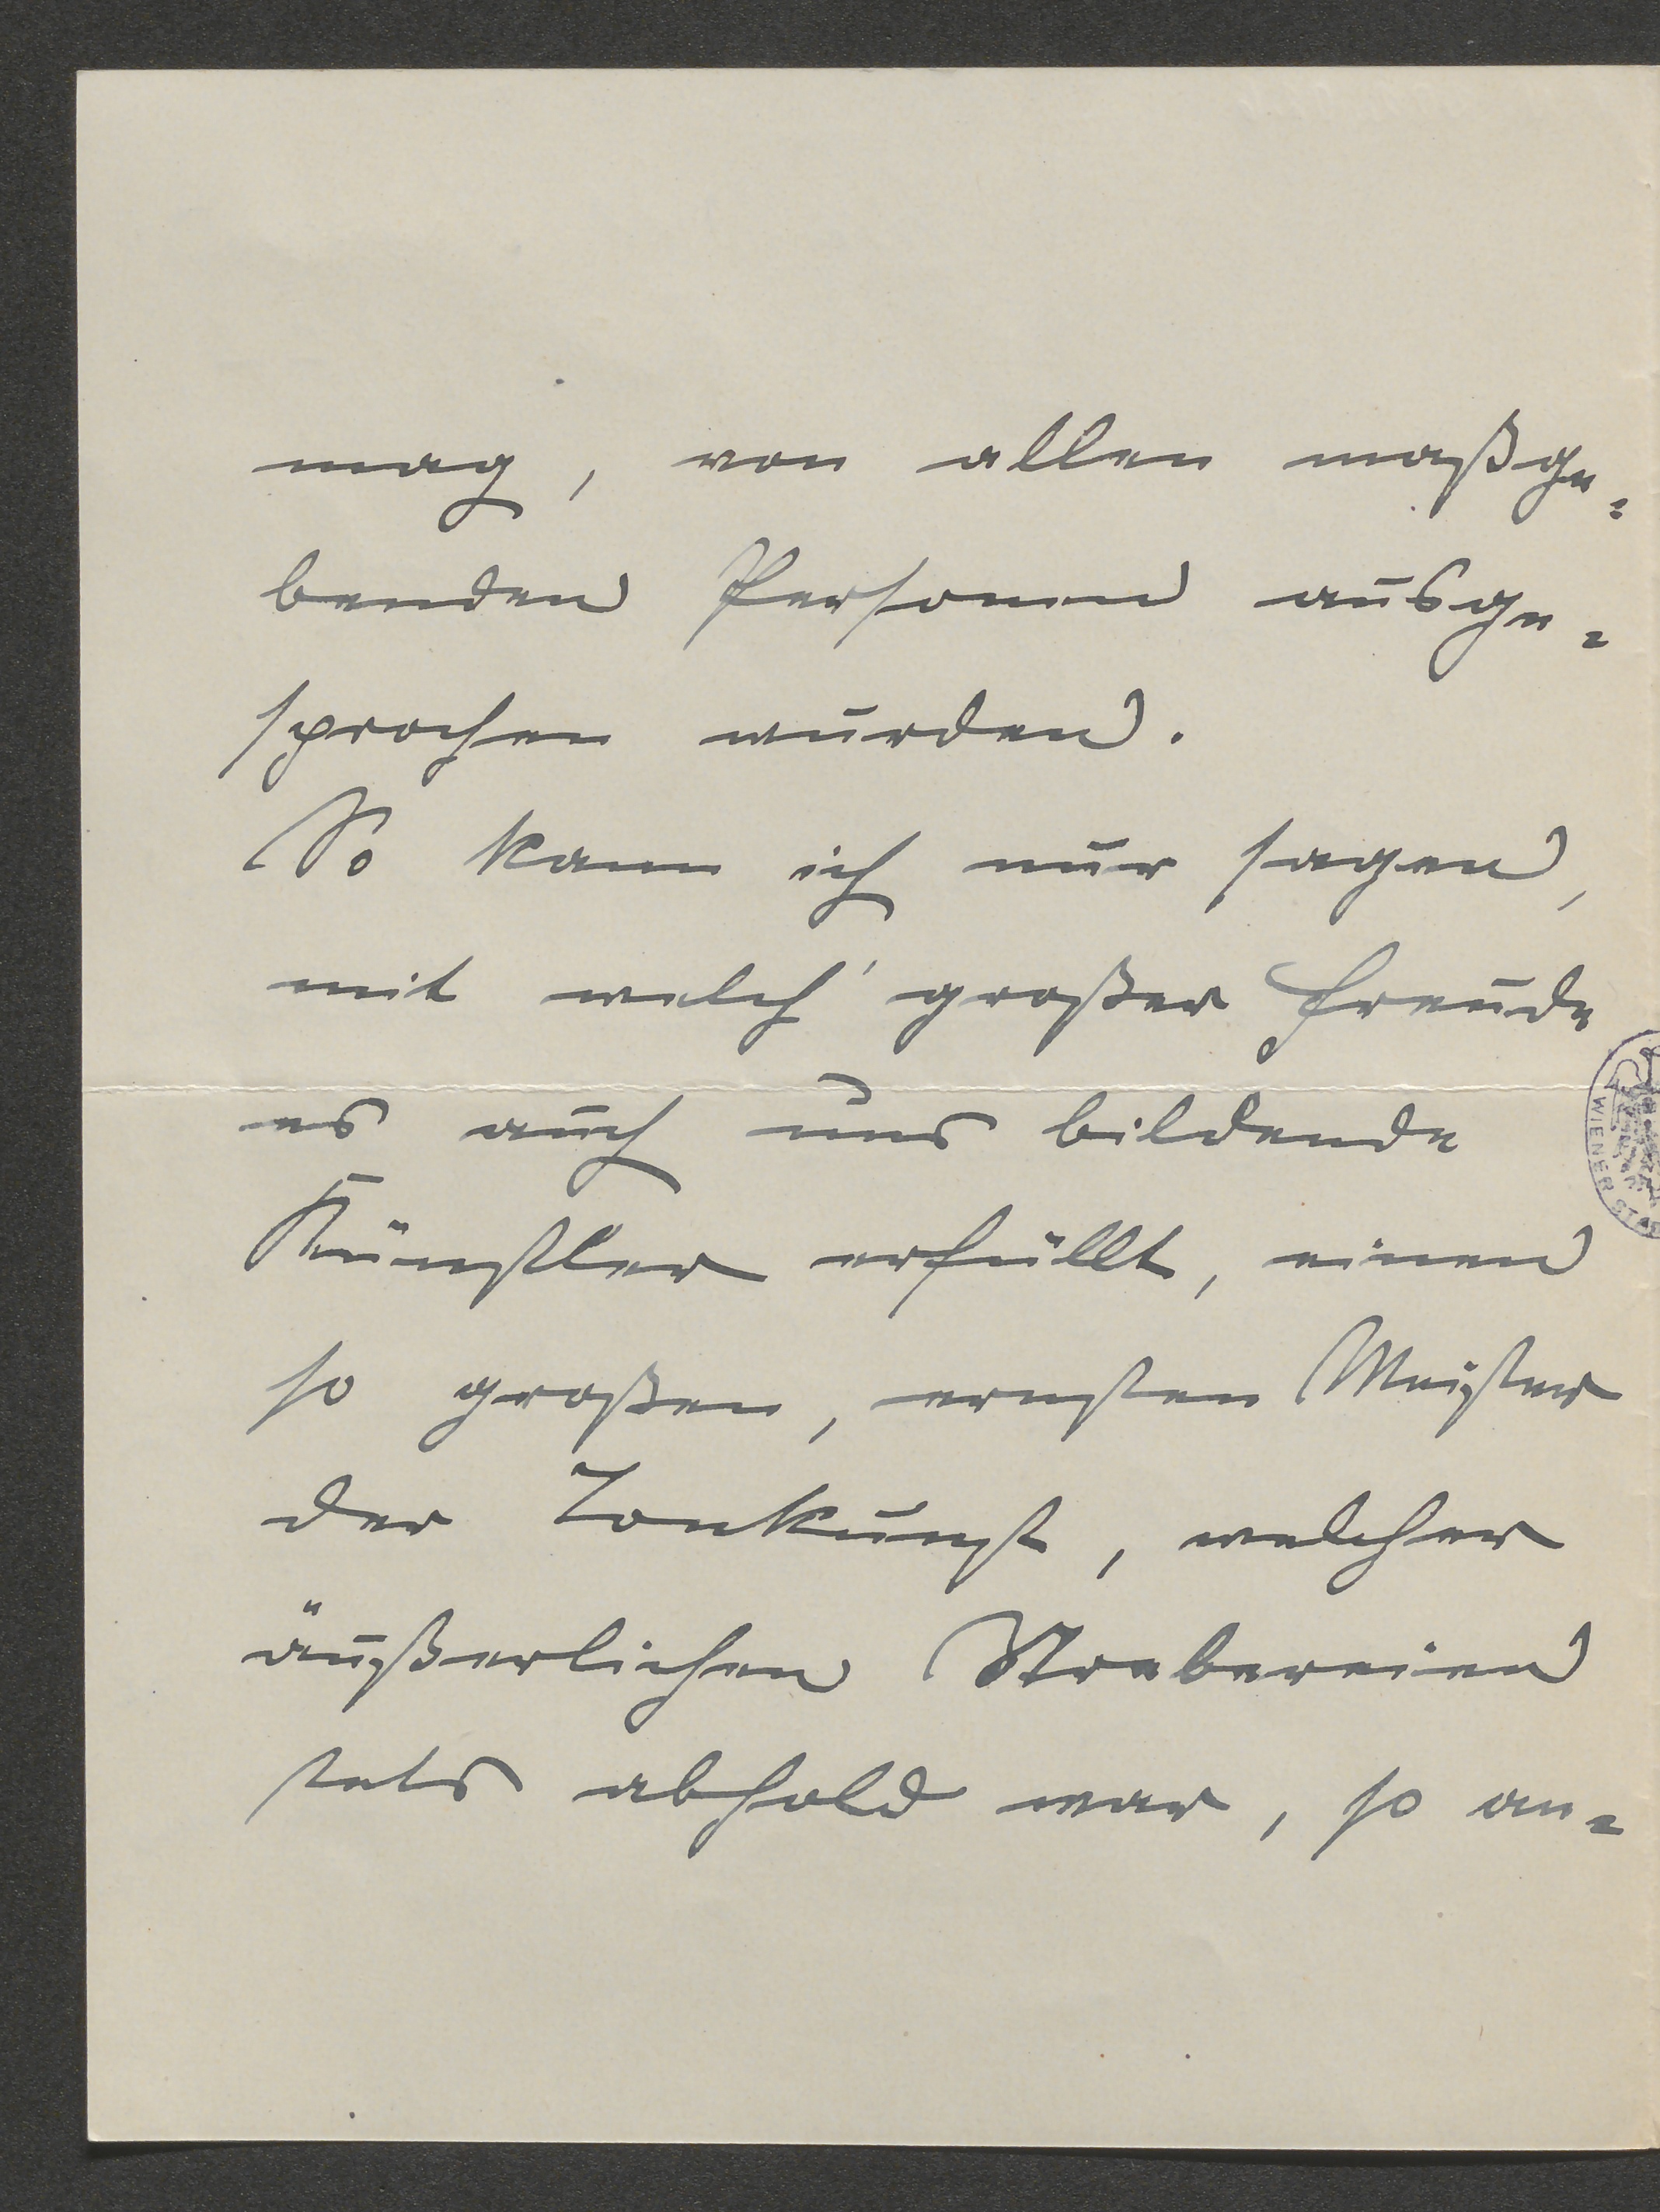 mag, von allen maßge=
benden Personen ausge=
sprochen wurden.
So kann ich nur sagen,
mit welch' großer Freude
es auch uns bildende
Künstler erfüllt, einen
so großen, ernsten Meister
der Tonkunst, welcher
äußerlichen Strebereien
stets abhold war, so an=
WIENER STA